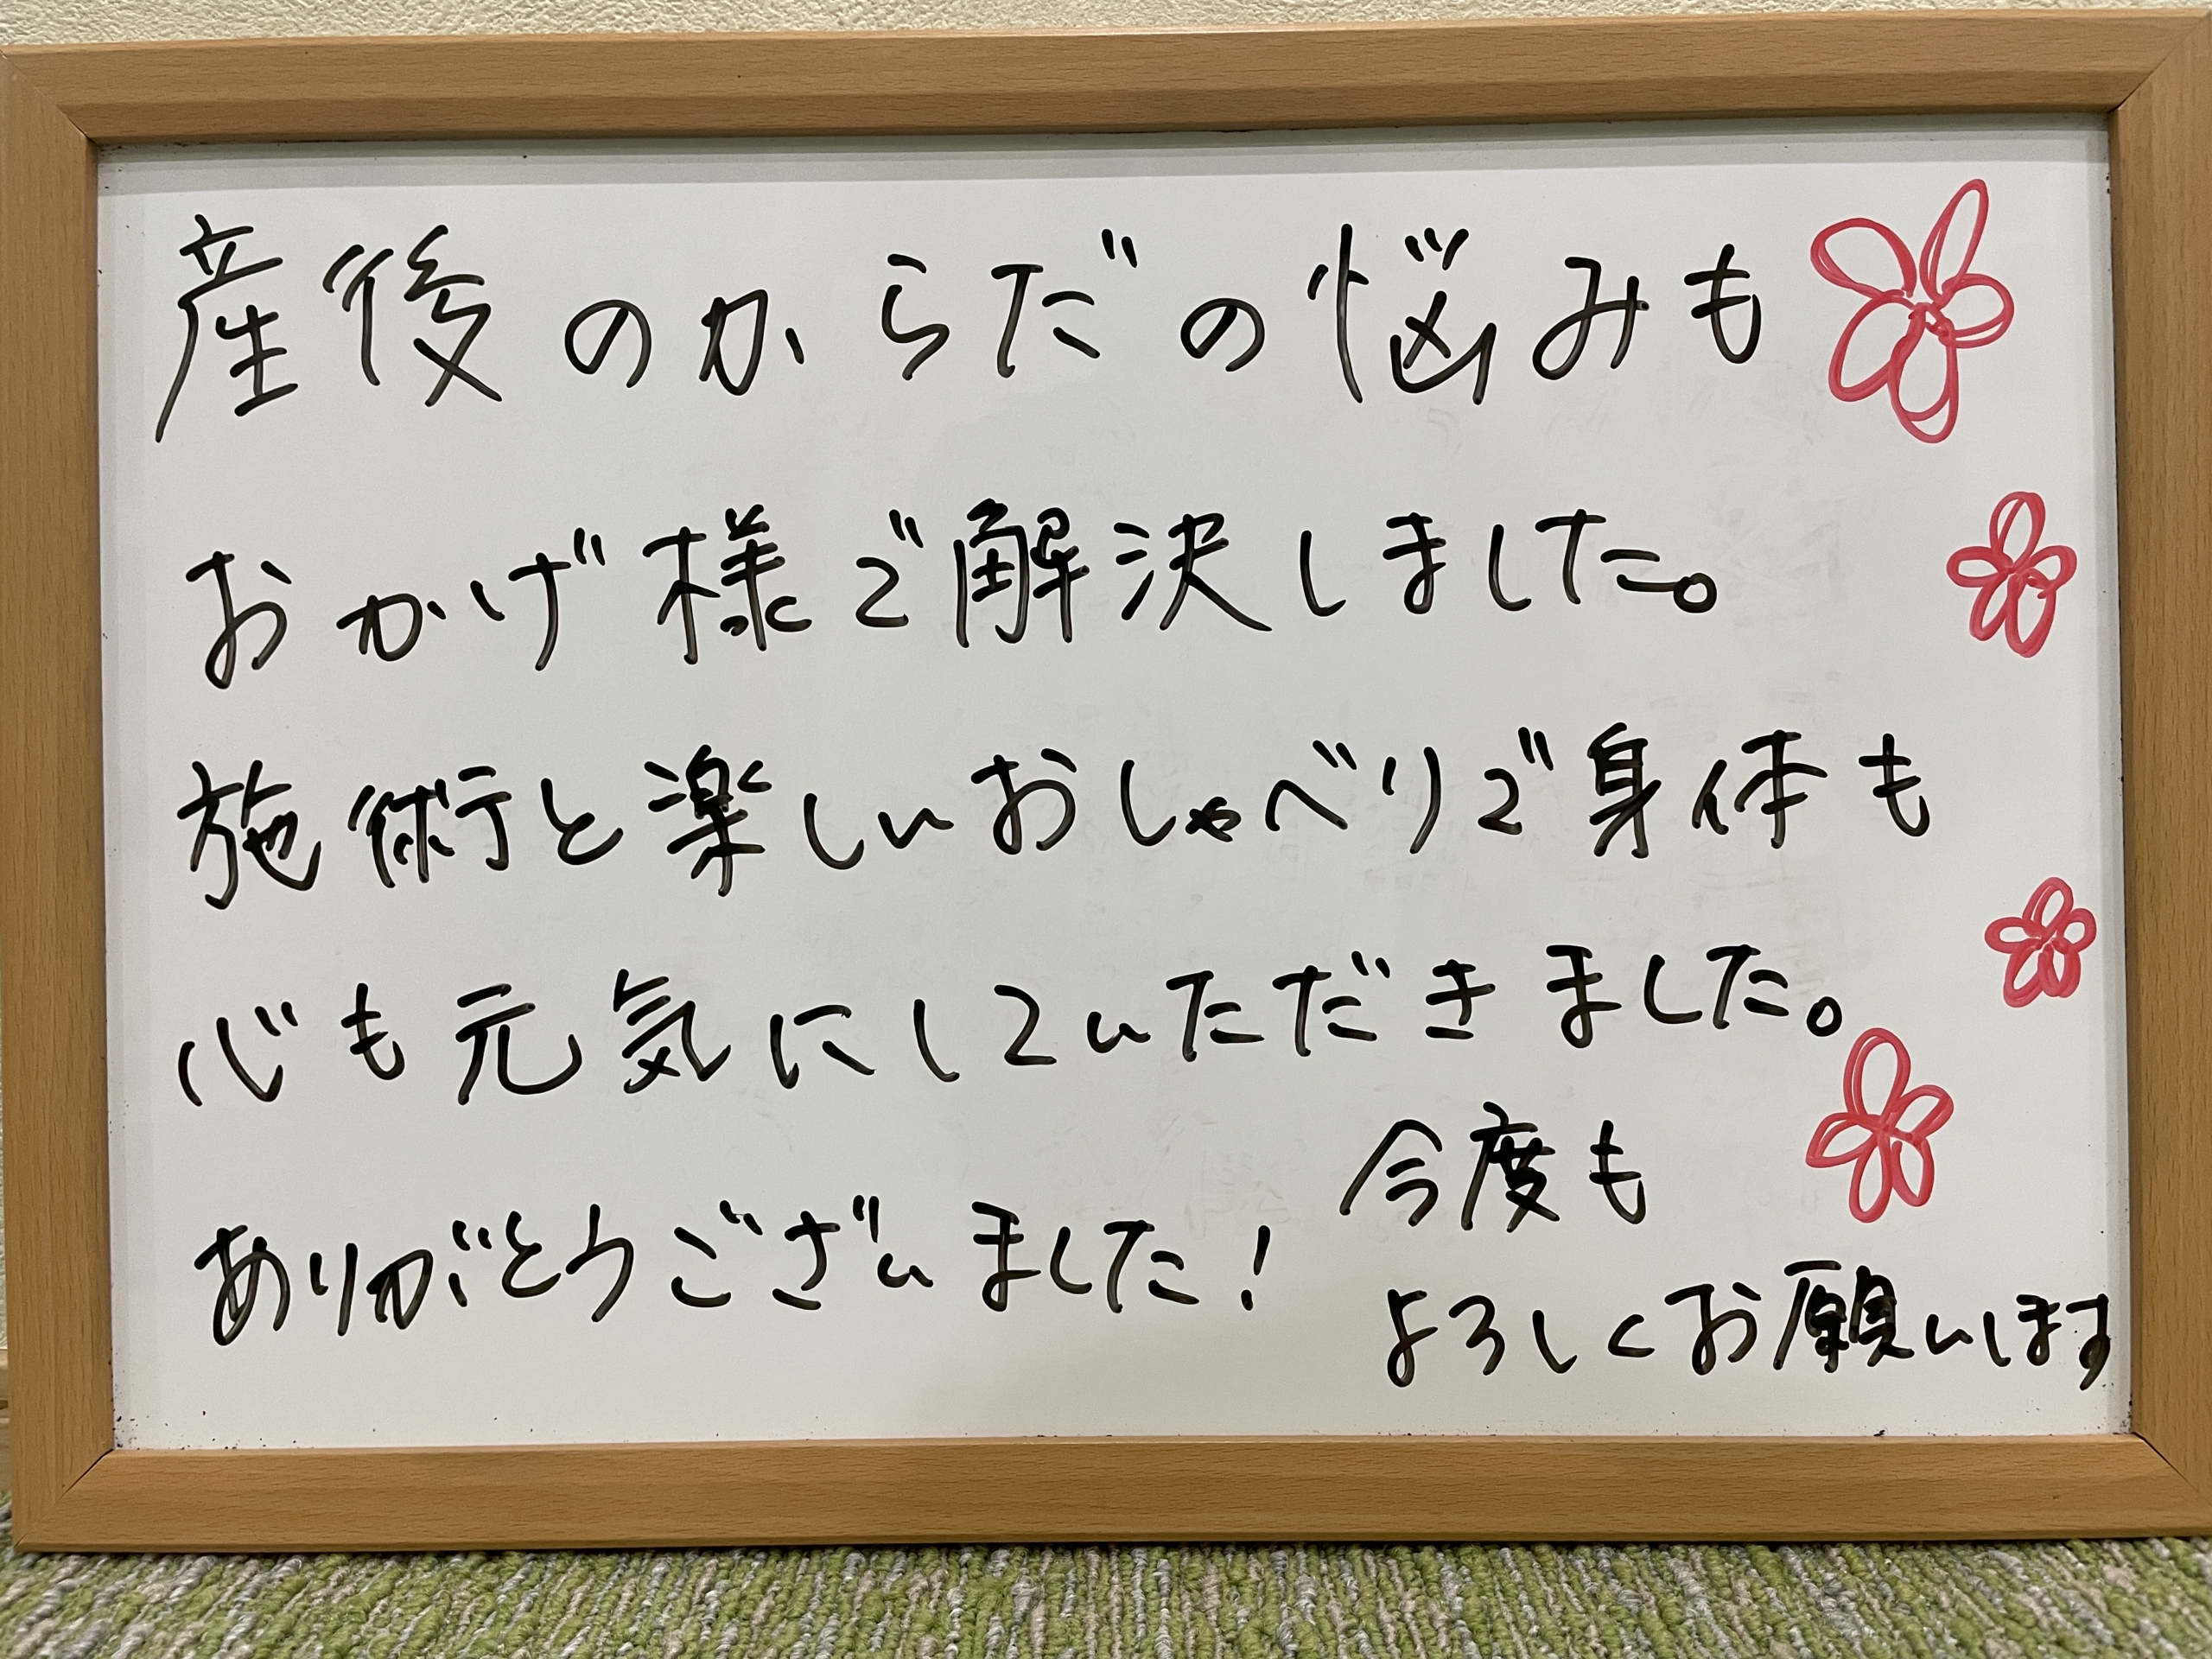 産後のからだの悩みも
おかげ様で解決しました。
施術と楽しいおしゃべりで身体も
心も元気にしていただきました。
ありがとうございました!
今度も
よろしくお願いします